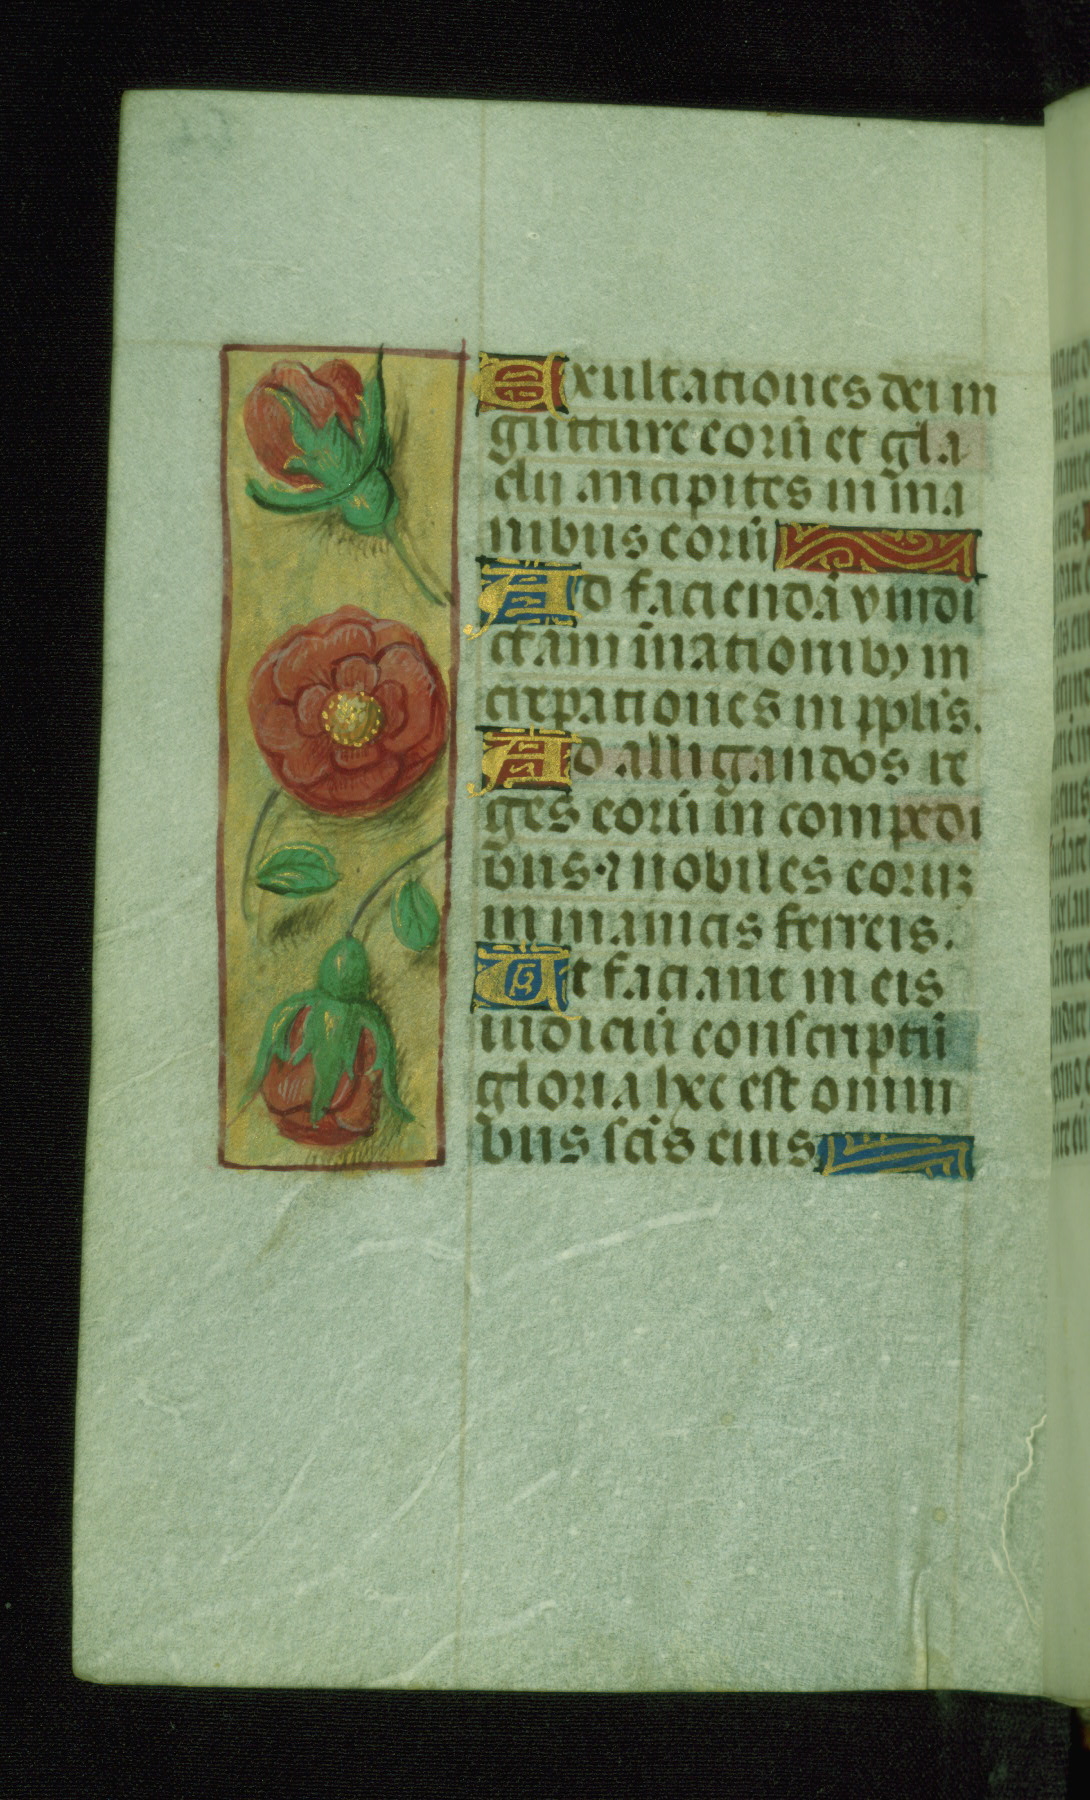 Exultationes dei in
gutture eorū et gla
dii ancipites in ma
nibus eorū
Ad faciendā vindi
ctam ī nationibꝰ in
crepationes in ppl̄is.
Ad alligandos re
ges eorū in compedi
bus ⁊ nobiles eorūꝫ
in manicis ferreis.
Ut faciant in eis
iudiciū conscriptū
gloria hec est omni
bus scīs eius